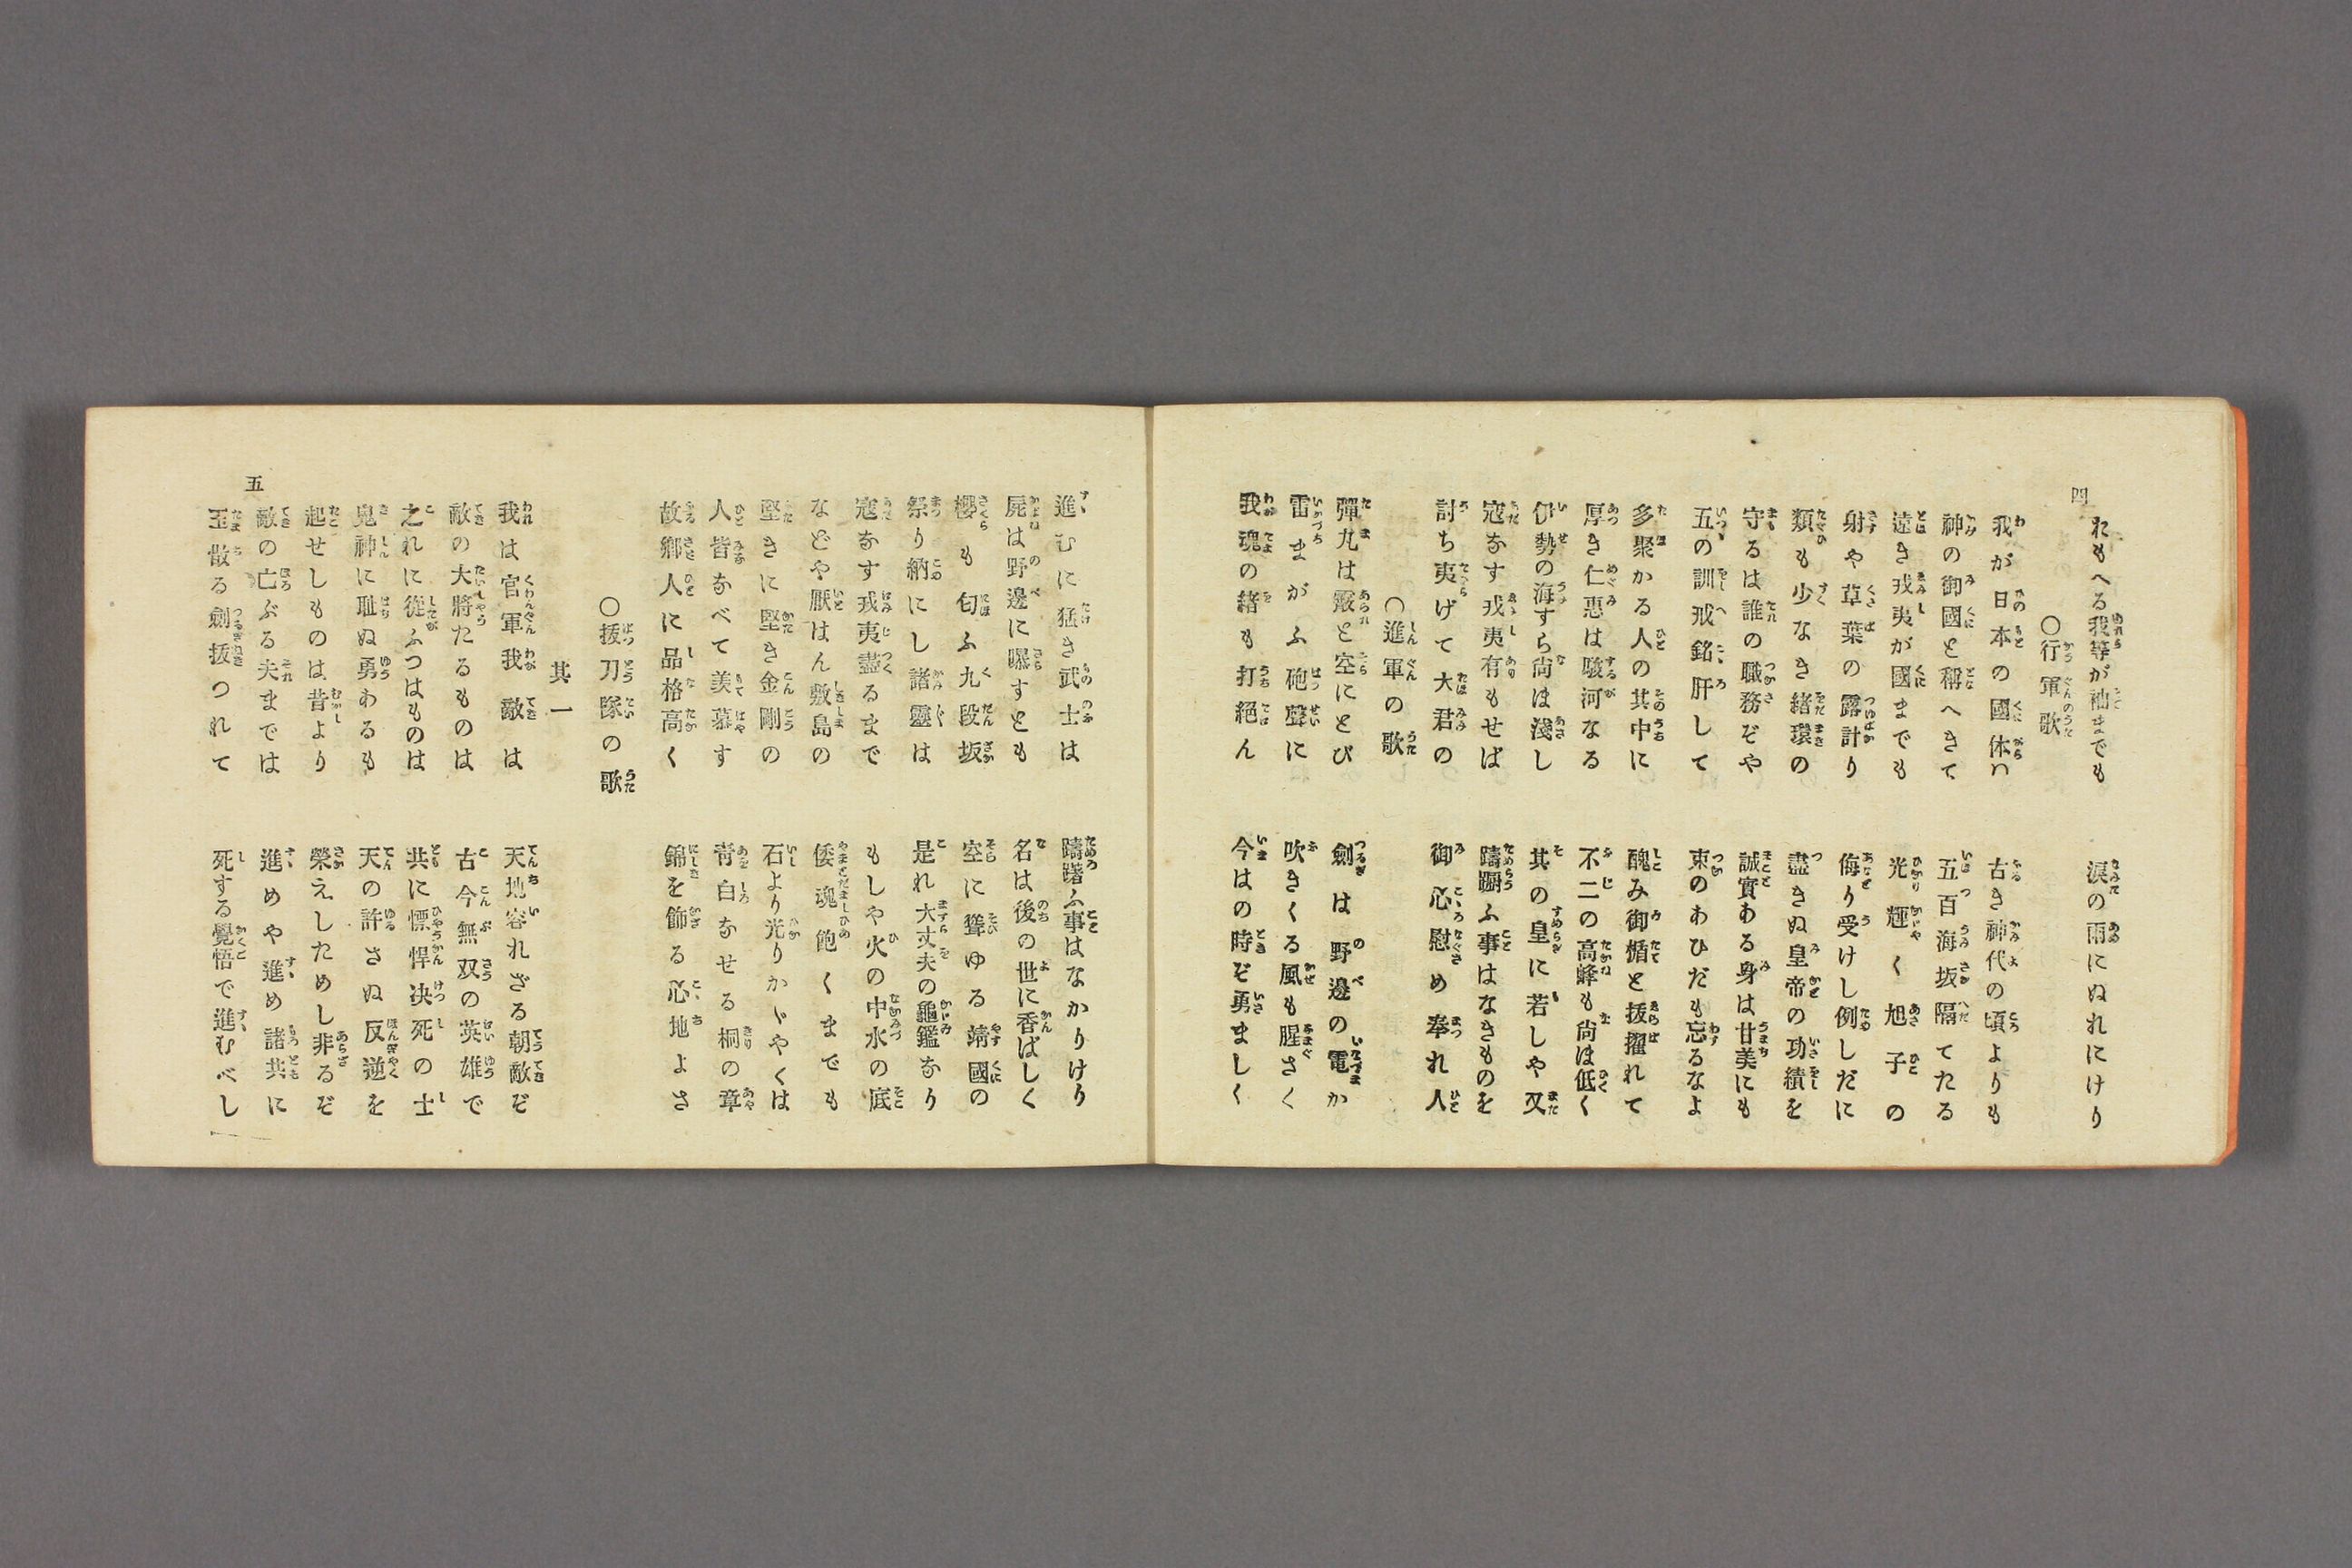 四
れもへる我等が袖までも　涙の雨にぬれにけり
〇行軍歌
我が日本の國体ハ　古き神代の頃よりも
神の御國と稱へきて　五百海坂隔てたる
遠き戎夷が國までも　光輝く旭子の
射や草葉の露計り　侮り受けし例しだに
類も少なき緒環の　盡きぬ皇帝の功績を
守るは誰の職務ぞや　誠實ある身は甘美にも
五の訓戒銘肝して　束のあひだも忘るなよ
多聚かる人の其中に　醜み御楯と抜擢れて
厚き仁惠は駿河なる　不二の高峰も尚ほ低く
伊勢の海すら尚ほ淺し　其の皇に若しや又
寇をなす戎夷有もせば　躊躙ふ事はなきものを
討ち夷げて大君の　御心慰め奉れ人
〇進軍の歌
彈丸は霰と空にとび　劍は野邊の電か
雷まがふ砲聲に　吹きくる風も腥さく
我魂の緒も打絕ん　今はの時ぞ勇ましく
進むに猛き武士は　躊躇ふ事はなかりけり
屍は野邊に曝すとも　名は後の世に香ばしく
櫻も匂ふ九段坂　空に聳ゆる靖國の
祭り納にし諸靈は　是れ大丈夫の龜鑑なり
寇をなす戎夷盡るまで　もしや火の中水の底
などや厭はん敷島の　倭魂飽くまでも
堅きに堅き金剛の　石より光りかゞやくは
人皆なべて羨慕す　靑白なせる桐の章
故鄕人に品格高く　錦を飾る心地よさ
〇拔刀隊の歌
其一
我は官軍我敵は　天地容れざる朝敵ぞ
敵の大將たるものは　古今無双の英雄で
之れに從ふつはものは　共に慓悍决死の士
鬼神に耻ぬ勇わるも　天の許さぬ反逆を
起せしものは昔より　榮えしためし非るぞ
敵の亡ぶる夫までは　進めや進め諸共に
玉散る劍拔つれて　死する覺悟で進むべし
五